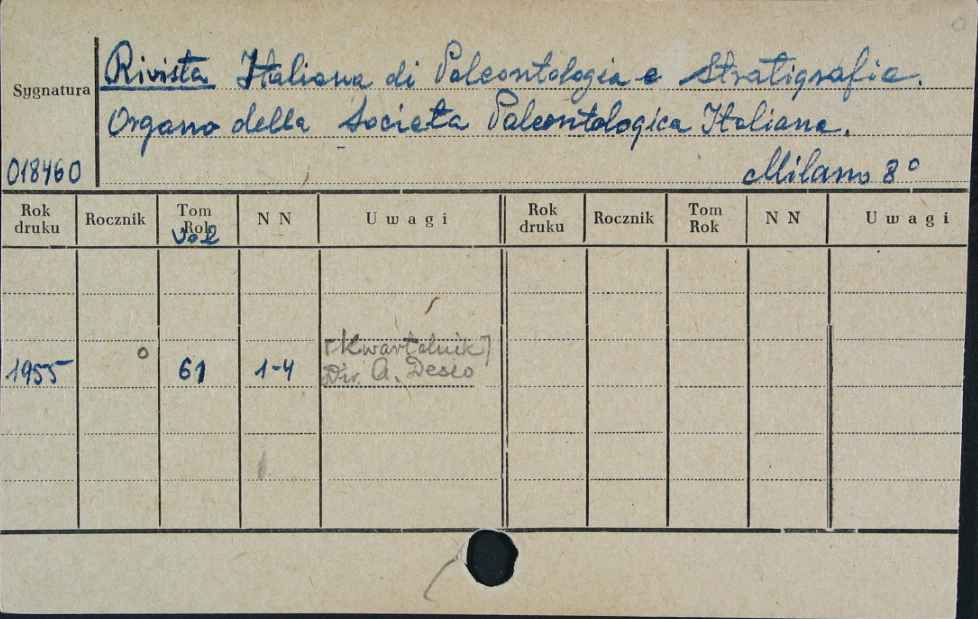 Rivista Italiana di Paleontologia e Stratigrafia.
Sygnatura
Organo della Societa Paleontologica Italiana.
018460
Milano 8°
Rok druku Rocznik Tom Rok Vol N N Uwagi Rok druku Rocznik Tom Rok N N Uwagi
[Kwartalnik]
1955 61 1-4 Dir. A. Desio